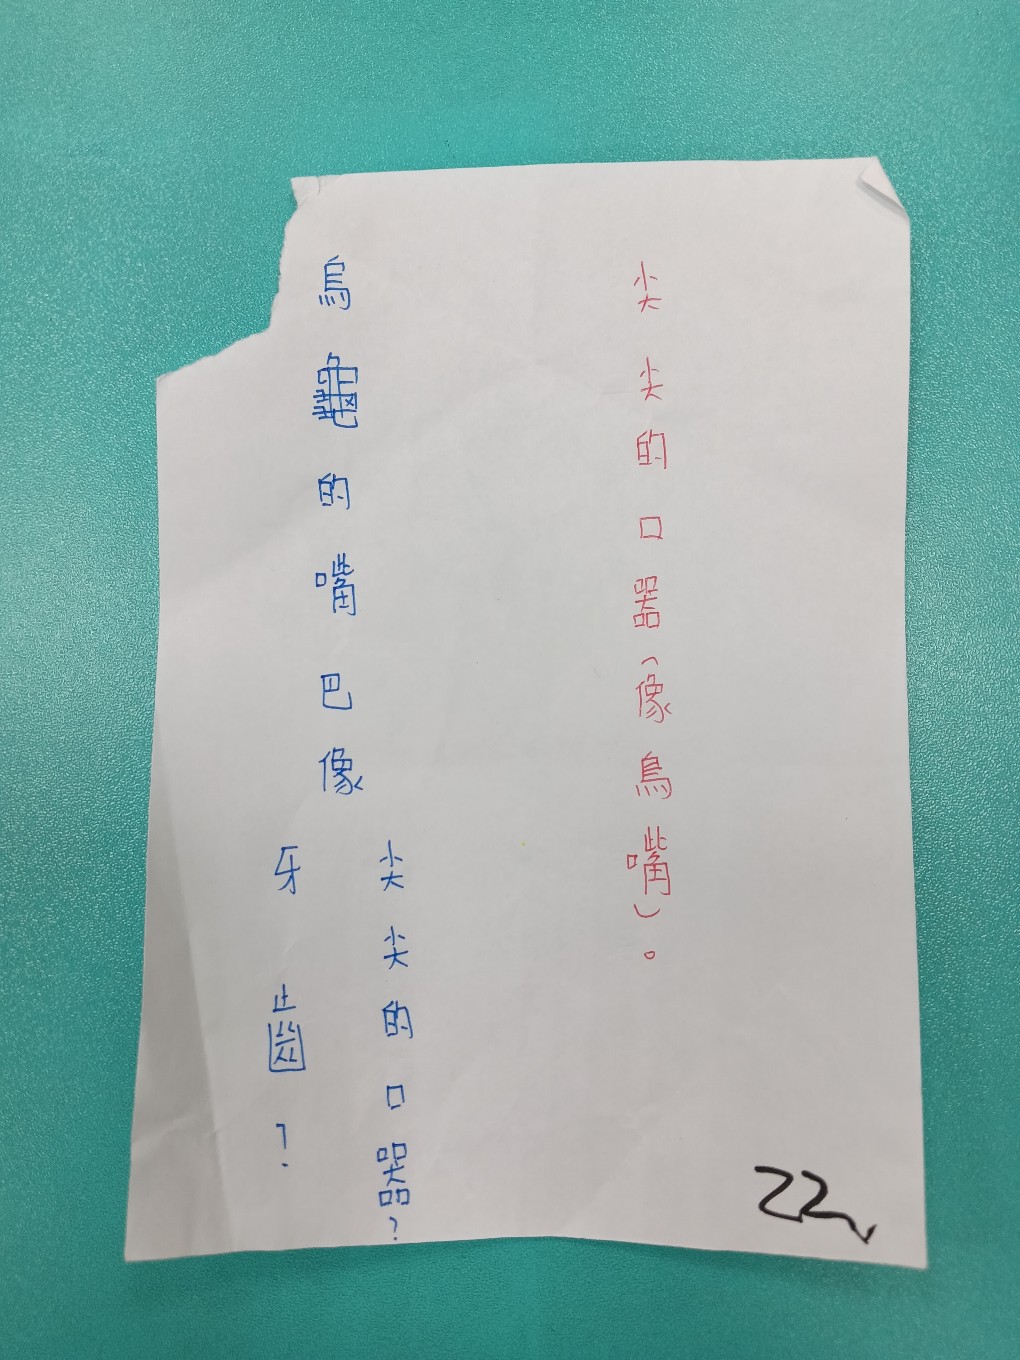 尖尖的口器(像鳥嘴)。
烏龜的嘴巴像
尖尖的口器?
牙齒?
22、